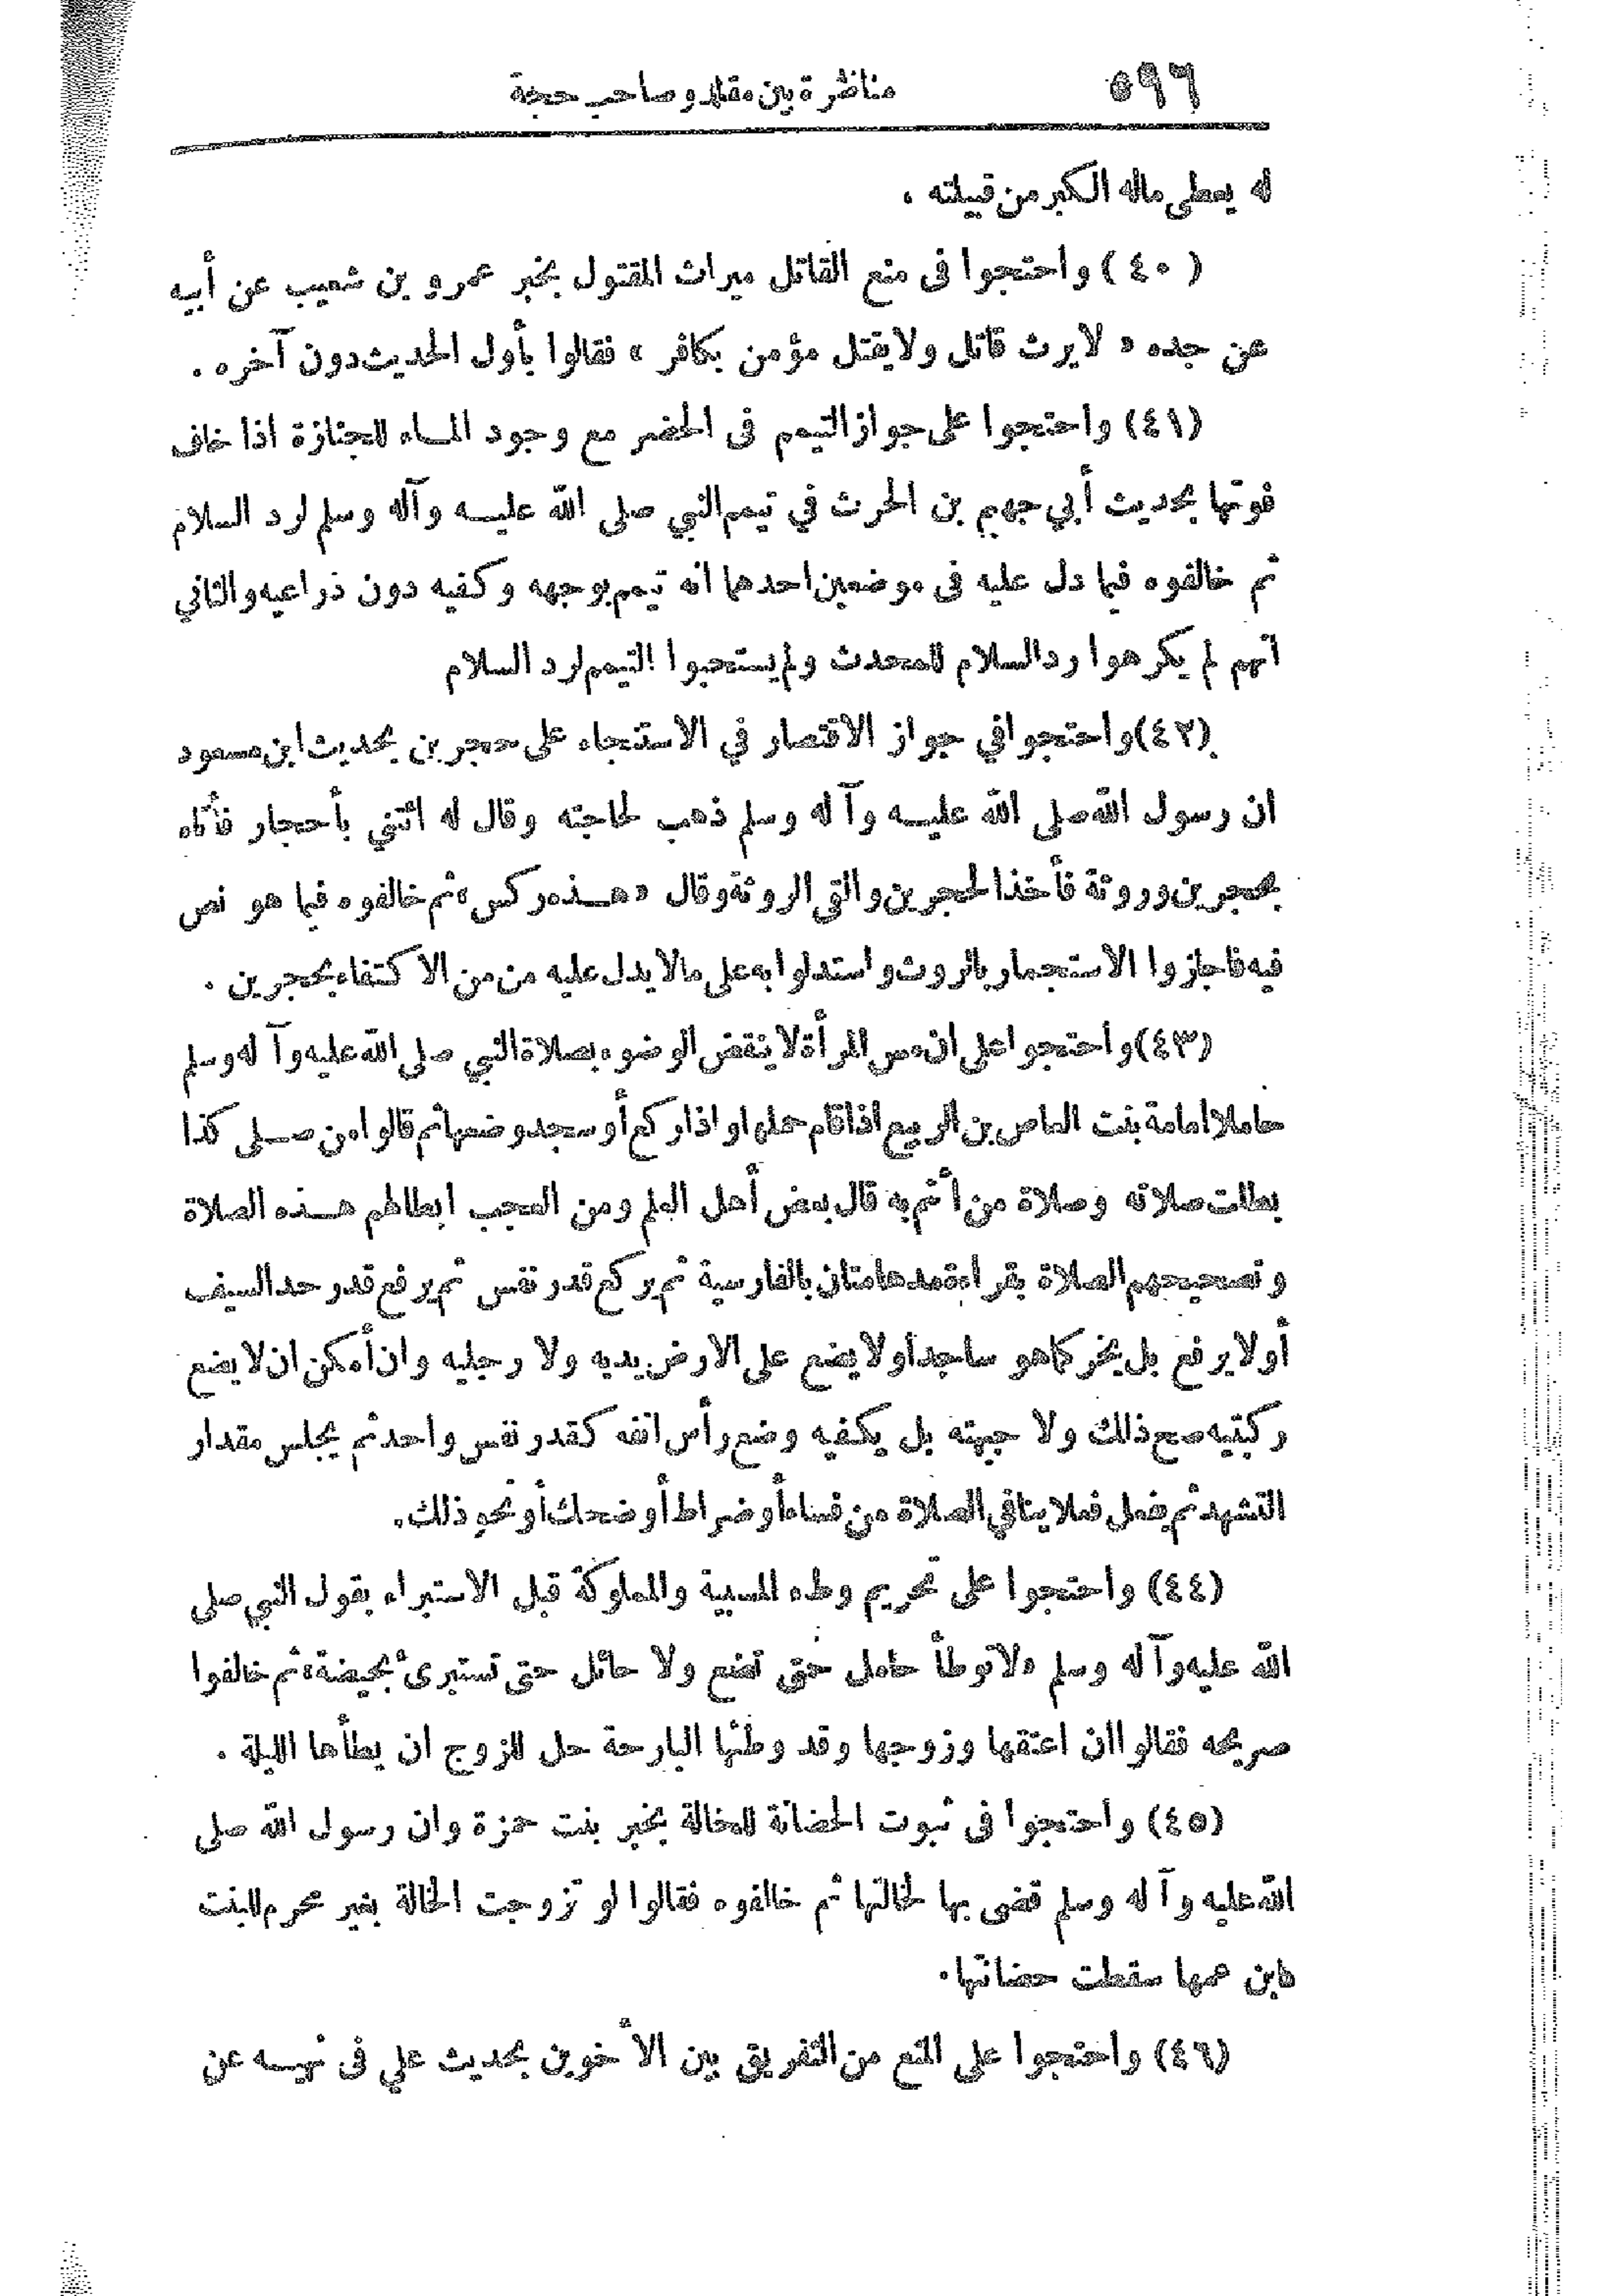 ٥٩٦ مناظرة بين مقلد وصاحب حجة
له يعطى ماله الكبر من قبيلته ،
( ٤٠ ) واحتجوا فى منع القاتل ميراث المقتول بخبر عمرو بن شعيب عن أبيه
عن جده « لا يرث قاتل ولا يقتل مؤمن بكافر » فقالوا بأول الحديث دون آخره .
(٤١) واحتجوا على جواز التيمم فى الحضر مع وجود المـاء للجنازة اذا خاف
فوتها بحديث أبي جهيم بن الحرث في تيمم النبي صلى الله عليـه وآله وسلم لرد السلام
ثم خالفوه فيما دل عليه فى موضعين احدهما انه تيمم بوجهه وكفيه دون ذراعيه والثاني
انهم لم يكرهوا رد السلام للمحدث ولم يستحبوا التيمم لرد السلام
(٤٢) واحتجوا في جواز الاقتصار في الاستنجاء على حجرين بحديث ابن مسعود
ان رسول الله صلى الله عليـه وآ له وسلم ذهب لحاجته وقال له ائتني بأحجار فأتاه
بحجرين وروثة فأخذ الحجرين والقى الروثة وقال «هـذه ركس» ثم خالفوه فيما هو نص
فيه فاجازوا الاستجمار بالروث واستدلوا به على مالا يدل عليه من من الاكتفاء بحجرين .
(٤٣) واحتجوا على ان مس المرأة لا ينقض الوضوء بصلاة النبي صلى الله عليه وآ له وسلم
حاملا امامة بنت العاص بن الربيع اذا قام حملها واذا ركع أو سجد وضعها ثم قالوا من صـلى كذا
بطلت صلاته وصلاة من أتم به قال بعض أهل العلم ومن العجب ابطالهم هـذه الصلاة
وتصحيحهم الصلاة بقراءة مدهامتان بالفارسية ثم يركع قدر نفس ثم يرفع قدر حد السيف
أو لا يرفع بل يخر كما هو ساجدا ولا يضع على الارض يديه ولا رجليه وان أمكن ان لا يضع
ركبتيه صح ذلك ولا جبهته بل يكفيه وضع رأس انفه كقدر نفس واحد ثم يجلس مقدار
التشهد ثم يفعل فعلا ينافي الصلاة من فساء أو ضراط أو ضحك أو نحو ذلك.
(٤٤) واحتجوا على تحريم وطء المسبية والمملوكة قبل الاستبراء بقول النبي صلى
الله عليه وآ له وسلم «لا توطأ حامل حتى تضع ولا حائل حتى تستبرئ بحيضة» ثم خالفوا
صريحه فقالوا ان اعتقها وزوجها وقد وطئها البارحة حل للزوج ان يطأها الليلة .
(٤٥) واحتجوا فى ثبوت الحضانة للخالة بخبر بنت حمزة وان رسول الله صلى
الله عليه وآ له وسلم قضى بها لخالتها ثم خالفوه فقالوا لو تزوجت الخالة بغير محرم للبنت
كابن عمها سقطت حضانتها.
(٤٦) واحتجوا على المنع من التفريق بين الأخوين بحديث علي فى نهيـه عن